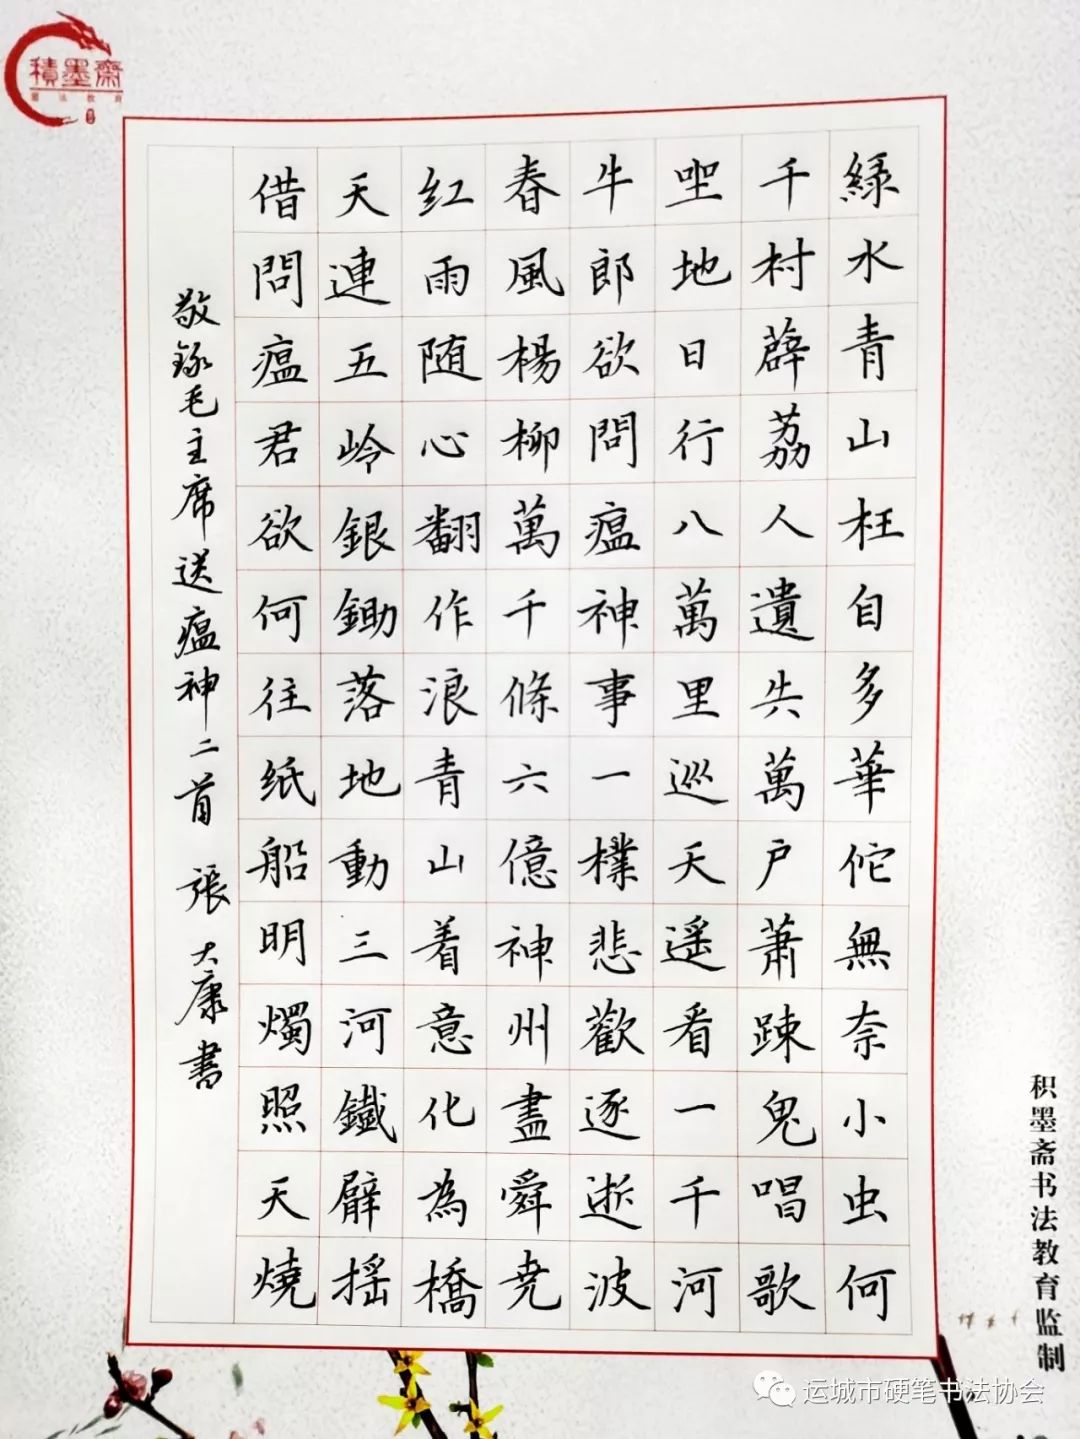 積墨齋
綠水青山枉自多華佗無奈小虫何
千村薜荔人遺失萬户蕭踈鬼唱歌
坐地日行八萬里巡天遥看一千河
牛郎欲問瘟神事一樣悲歡逐逝波
春風楊柳萬千條六億神州盡舜尭
红雨随心翻作浪青山着意化為橋
天連五岭銀鋤落地動三河鐵臂摇
借問瘟君欲何往纸船明燭照天燒
敬錄毛主席送瘟神二首 張大康書
积墨斋书法教育监制
运城市硬笔书法协会